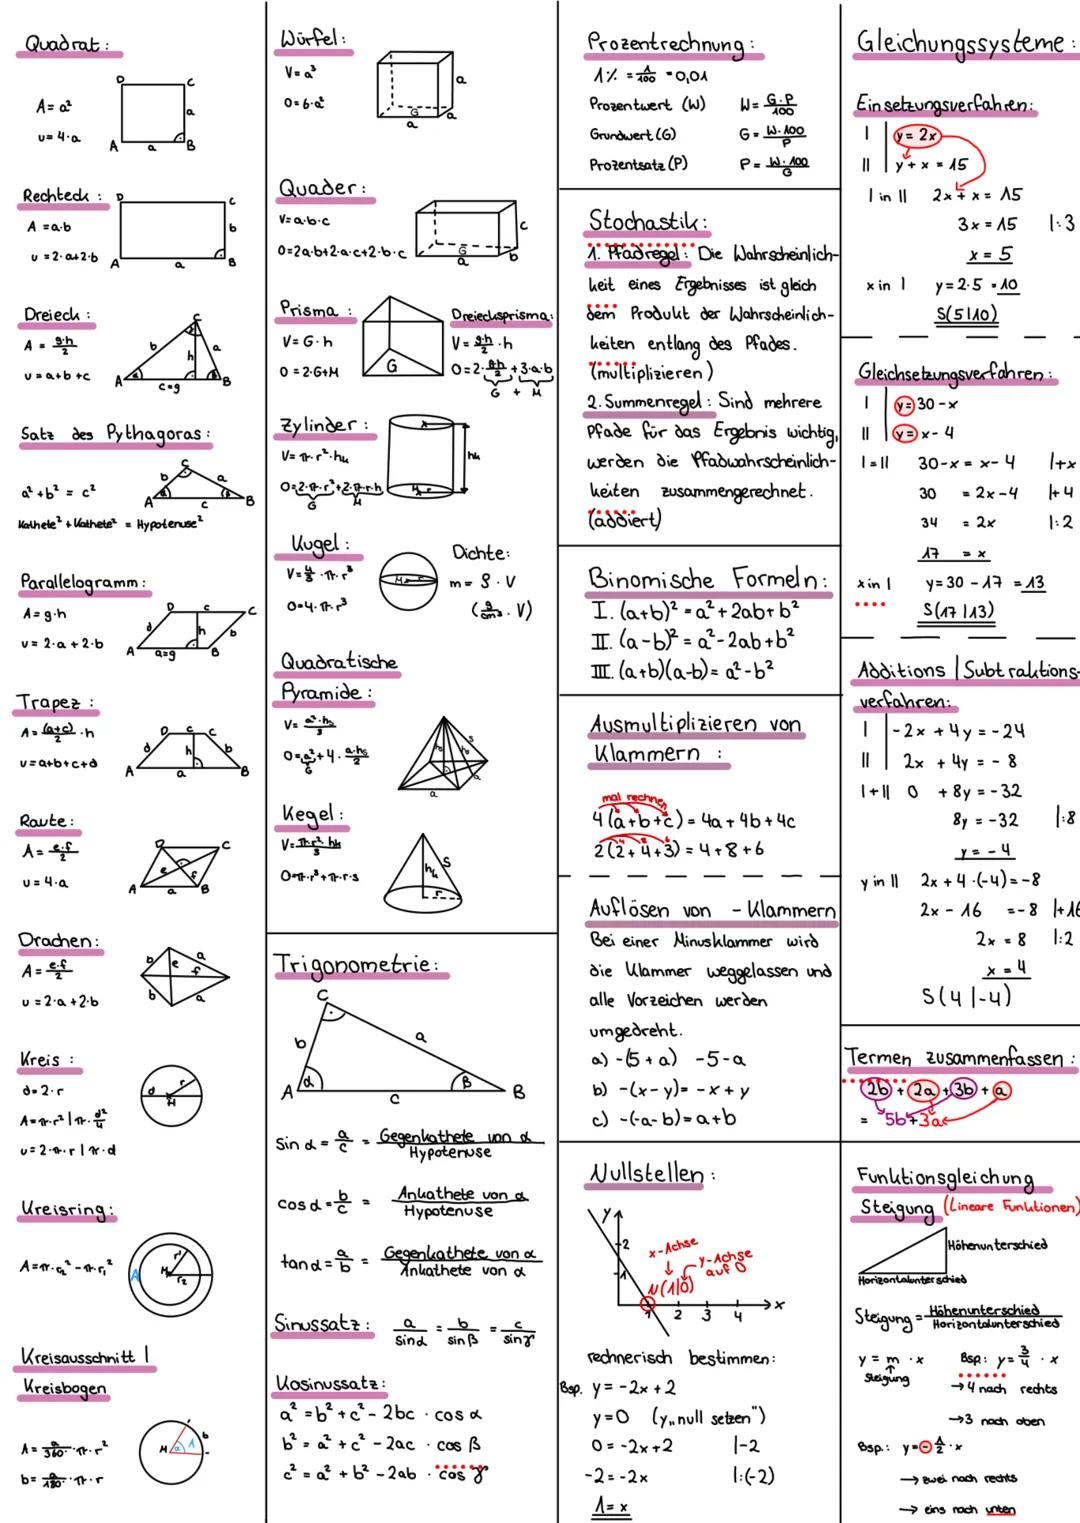 Quadrat:
D C
A = a²
u = 4·a
a
A a B
Rechteck:
D C
A = a·b
b
u = 2·a+2·b
A a B
Dreieck:
C
A = g·h/2
b h a
u = a+b+c
A c=g B
Satz des Pythagoras:
C
b a
a² + b² = c²
A c B
Kathete² + Kathete² = Hypotenuse²
Parallelogramm:
A = g·h
D c C
d h b
u = 2·a + 2·b
A a=g B
Trapez:
A = (a+c)/2 · h
D c C
d h b
u = a+b+c+d
A a B
Raute:
A = e·f/2
D C
e f
u = 4·a
A a B
Drachen:
A = e·f/2
b e a
f
u = 2·a + 2·b
b a
Kreis:
d = 2·r
d r
M
A = π·r² | π·d²/4
u = 2·π·r | π·d
Kreisring:
A = π·r₂² - π·r₁²
A M r¹ r₂
Kreisausschnitt |
Kreisbogen
A = α/360 · π·r²
b = α/180 · π·r
M α A b
Würfel:
V = a³
O = 6·a²
a
G
a a
Quader:
V = a·b·c
O = 2a·b+2·a·c+2·b·c
c
G
a b
Prisma:
V = G·h
O = 2·G+M
G
Dreiecksprisma:
V = g·h/2 · h
O = 2·g·h/2 + 3·a·b
G + M
Zylinder:
V = π·r²·hₖ
O = 2·π·r² + 2·π·r·h
G M
hₖ
M r
Kugel:
V = 4/3 · π·r³
O = 4·π·r³
M r
Dichte:
m = ϱ · V
(g/cm³ · V)
Quadratische
Pyramide:
V = a²·hₛ/3
O = a² + 4 · a·hₛ/2
G
s
a
a
Kegel:
V = π·r²·hₖ/3
O = π·r³ + π·r·s
hₖ s
r
Trigonometrie:
C
b a
A α β B
c
sin α = a/c = Gegenkathete von α/Hypotenuse
cos α = b/c = Ankathete von α/Hypotenuse
tan α = a/b = Gegenkathete von α/Ankathete von α
Sinussatz: a/sin α = b/sin β = c/sin γ
Kosinussatz:
a² = b² + c² - 2bc · cos α
b² = a² + c² - 2ac · cos β
c² = a² + b² - 2ab · cos γ
Prozentrechnung:
1% = 1/100 = 0,01
Prozentwert (W) W = G·P/100
Grundwert (G) G = W·100/P
Prozentsatz (P) P = W·100/G
Stochastik:
1. Pfadregel: Die Wahrscheinlich-
keit eines Ergebnisses ist gleich
dem Produkt der Wahrscheinlich-
keiten entlang des Pfades.
(multiplizieren)
2. Summenregel: Sind mehrere
Pfade für das Ergebnis wichtig,
werden die Pfadwahrscheinlich-
keiten zusammengerechnet.
(addiert)
Binomische Formeln:
I. (a+b)² = a² + 2ab + b²
II. (a-b)² = a² - 2ab + b²
III. (a+b)(a-b) = a² - b²
Ausmultiplizieren von
Klammern:
mal rechnen
4(a+b+c) = 4a + 4b + 4c
2(2+4+3) = 4+8+6
Auflösen von - Klammern
Bei einer Minusklammer wird
die Klammer weggelassen und
alle Vorzeichen werden
umgedreht.
a) -(5+a) -5-a
b) -(x-y) = -x + y
c) -(-a-b) = a+b
Nullstellen:
y
2
1
x-Achse
y-Achse
auf 0
N(1|0)
1 2 3 4 x
rechnerisch bestimmen:
Bsp. y = -2x + 2
y = 0 (y „null setzen")
0 = -2x + 2 |-2
-2 = -2x |:(-2)
1 = x
Gleichungssysteme:
Einsetzungsverfahren:
I y = 2x
II y + x = 15
I in II 2x + x = 15
3x = 15 |:3
x = 5
x in I y = 2·5 = 10
S(5|10)
Gleichsetzungsverfahren:
I y = 30 - x
II y = x - 4
I = II 30-x = x-4 |+x
30 = 2x-4 |+4
34 = 2x |:2
17 = x
x in I y = 30 - 17 = 13
S(17|13)
Additions | Subtraktions-
verfahren:
I -2x + 4y = -24
II 2x + 4y = -8
I+II 0 + 8y = -32
8y = -32 |:8
y = -4
y in II 2x + 4·(-4) = -8
2x - 16 = -8 |+16
2x = 8 |:2
x = 4
S(4|-4)
Termen zusammenfassen:
2b + 2a + 3b + a
= 5b + 3a
Funktionsgleichung
Steigung (Lineare Funktionen)
Höhenunterschied
Horizontalunterschied
Steigung = Höhenunterschied/Horizontalunterschied
y = m · x Bsp.: y = 3/4 · x
Steigung
→ 4 nach rechts
→ 3 nach oben
Bsp.: y = -1/2 · x
→ zwei nach rechts
→ eins nach unten